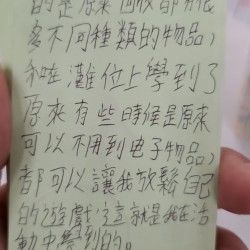 的是原來回收都有很
多不同種類的物品，
和在灘位上學到了
原來有些時候是原來
可以不用到电子物品，
都可以讓我放鬆自己
的遊戲了這就是我在活
動中學到的。